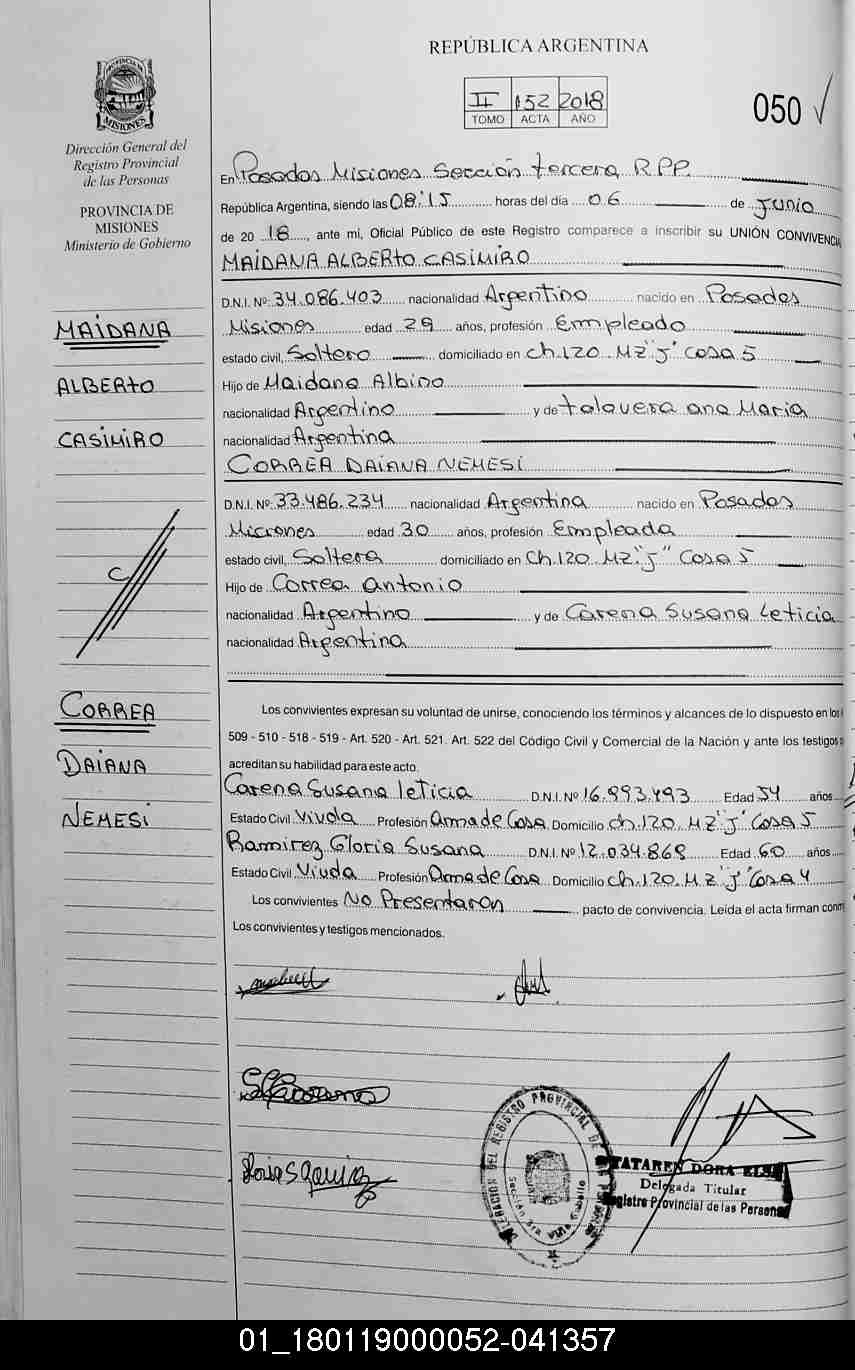 REPÚBLICA ARGENTINA
II 152 2018
TOMO ACTA AÑO
050
PROVINCIA DE
MISIONES
Dirección General del
Registro Provincial
de las Personas
PROVINCIA DE
MISIONES
Ministerio de Gobierno
En Posadas Misiones Sección tercera R.P.P.
República Argentina, siendo las 08:15 horas del día 06 de Junio
de 2018, ante mi, Oficial Público de este Registro comparece a inscribir su UNIÓN CONVIVENCIA
MAIDANA ALBERTO CASIMIRO
D.N.I. Nº 34.086.403 nacionalidad Argentino nacido en Posadas
Misiones edad 29 años, profesión Empleado
estado civil, Soltero domiciliado en Ch.120. MZ "J" Casa 5
Hijo de Maidana Albino
nacionalidad Argentino y de talavera ana Maria
nacionalidad Argentina
CORREA DAIANA NEMESI
D.N.I. Nº 33.486.234 nacionalidad Argentina nacido en Posadas
Miciones edad 30 años, profesión Empleada
estado civil, Soltera domiciliado en Ch.120. MZ. "J" Casa 5
Hijo de Correa Antonio
nacionalidad Argentino y de Carena Susana Leticia
nacionalidad Argentina
MAIDANA
ALBERTO
CASIMIRO
C
CORREA
DAIANA
NEMESI
Los convivientes expresan su voluntad de unirse, conociendo los términos y alcances de lo dispuesto en los
509 - 510 - 518 - 519 - Art. 520 - Art. 521. Art. 522 del Código Civil y Comercial de la Nación y ante los testigos
acreditan su habilidad para este acto.
Carena Susana leticia D.N.I. Nº 16.993.493 Edad 54 años
Estado Civil Viuda Profesión Ama de Casa Domicilio ch.120. MZ "J" Casa 5
Ramirez Gloria Susana D.N.I. Nº 12.034.869 Edad 60 años
Estado Civil Viuda Profesión Ama de Casa Domicilio Ch.120. MZ "J" Casa 4
Los convivientes No Presentaron pacto de convivencia. Leída el acta firman
Los convivientes y testigos mencionados.
DELEGACION DEL REGISTRO PROVINCIAL DE LAS PERSONAS
TATAREN DORA ELSA
Delegada Titular
Registro Provincial de las Personas
01_180119000052-041357